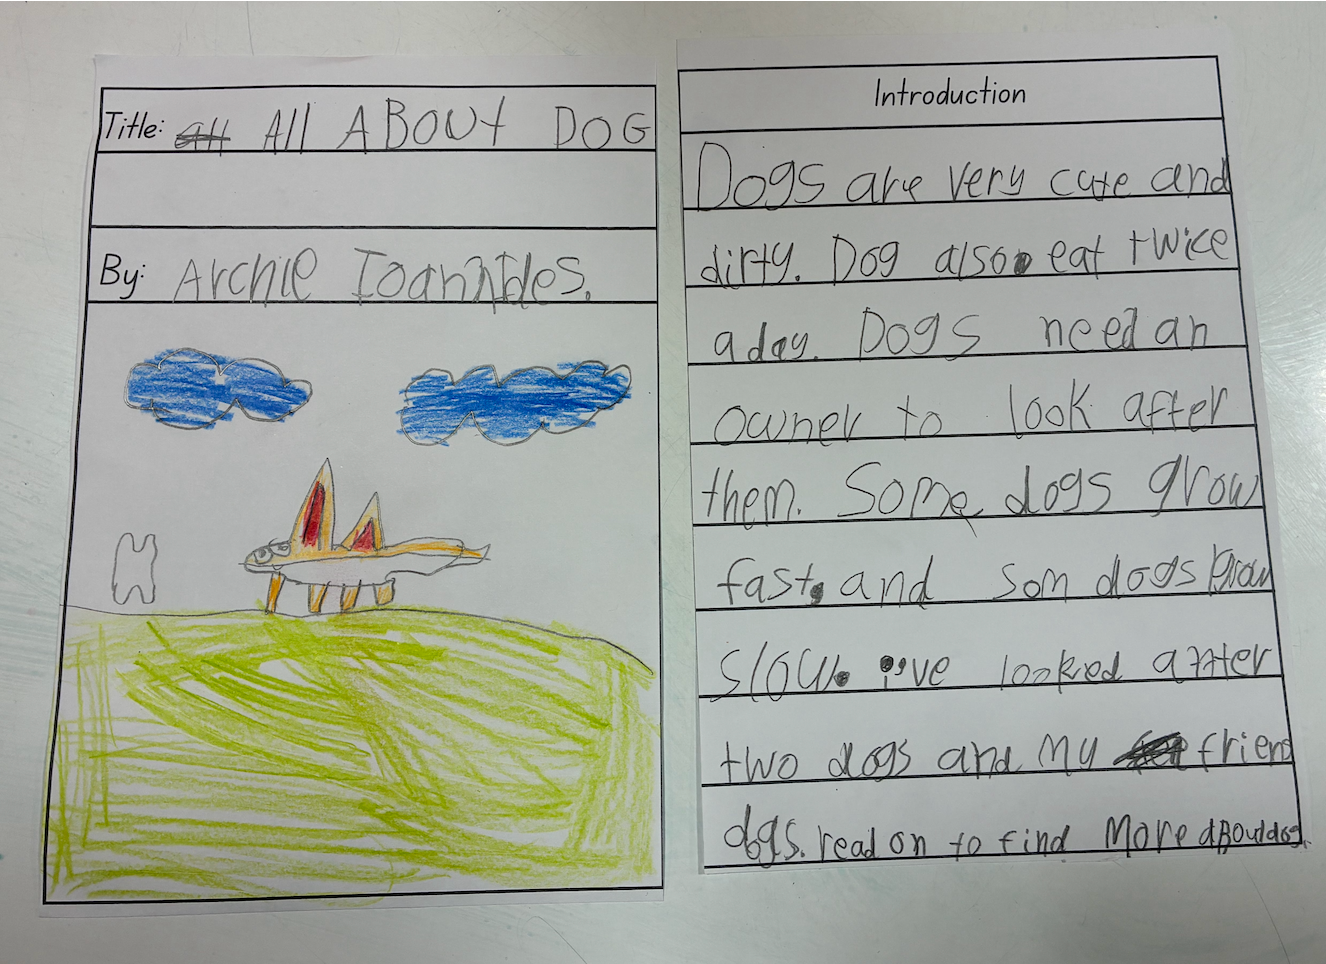 Title: All ABOUt DOG
By: Archie Ioannides.
Introduction
Dogs are very cute and
dirty. Dog also eat twice
a day. Dogs need an
owner to look after
them. Some dogs grow
fast, and som dogs grow
slow. i've looked after
two dogs and my friend
dogs. read on to find More aBout dog.